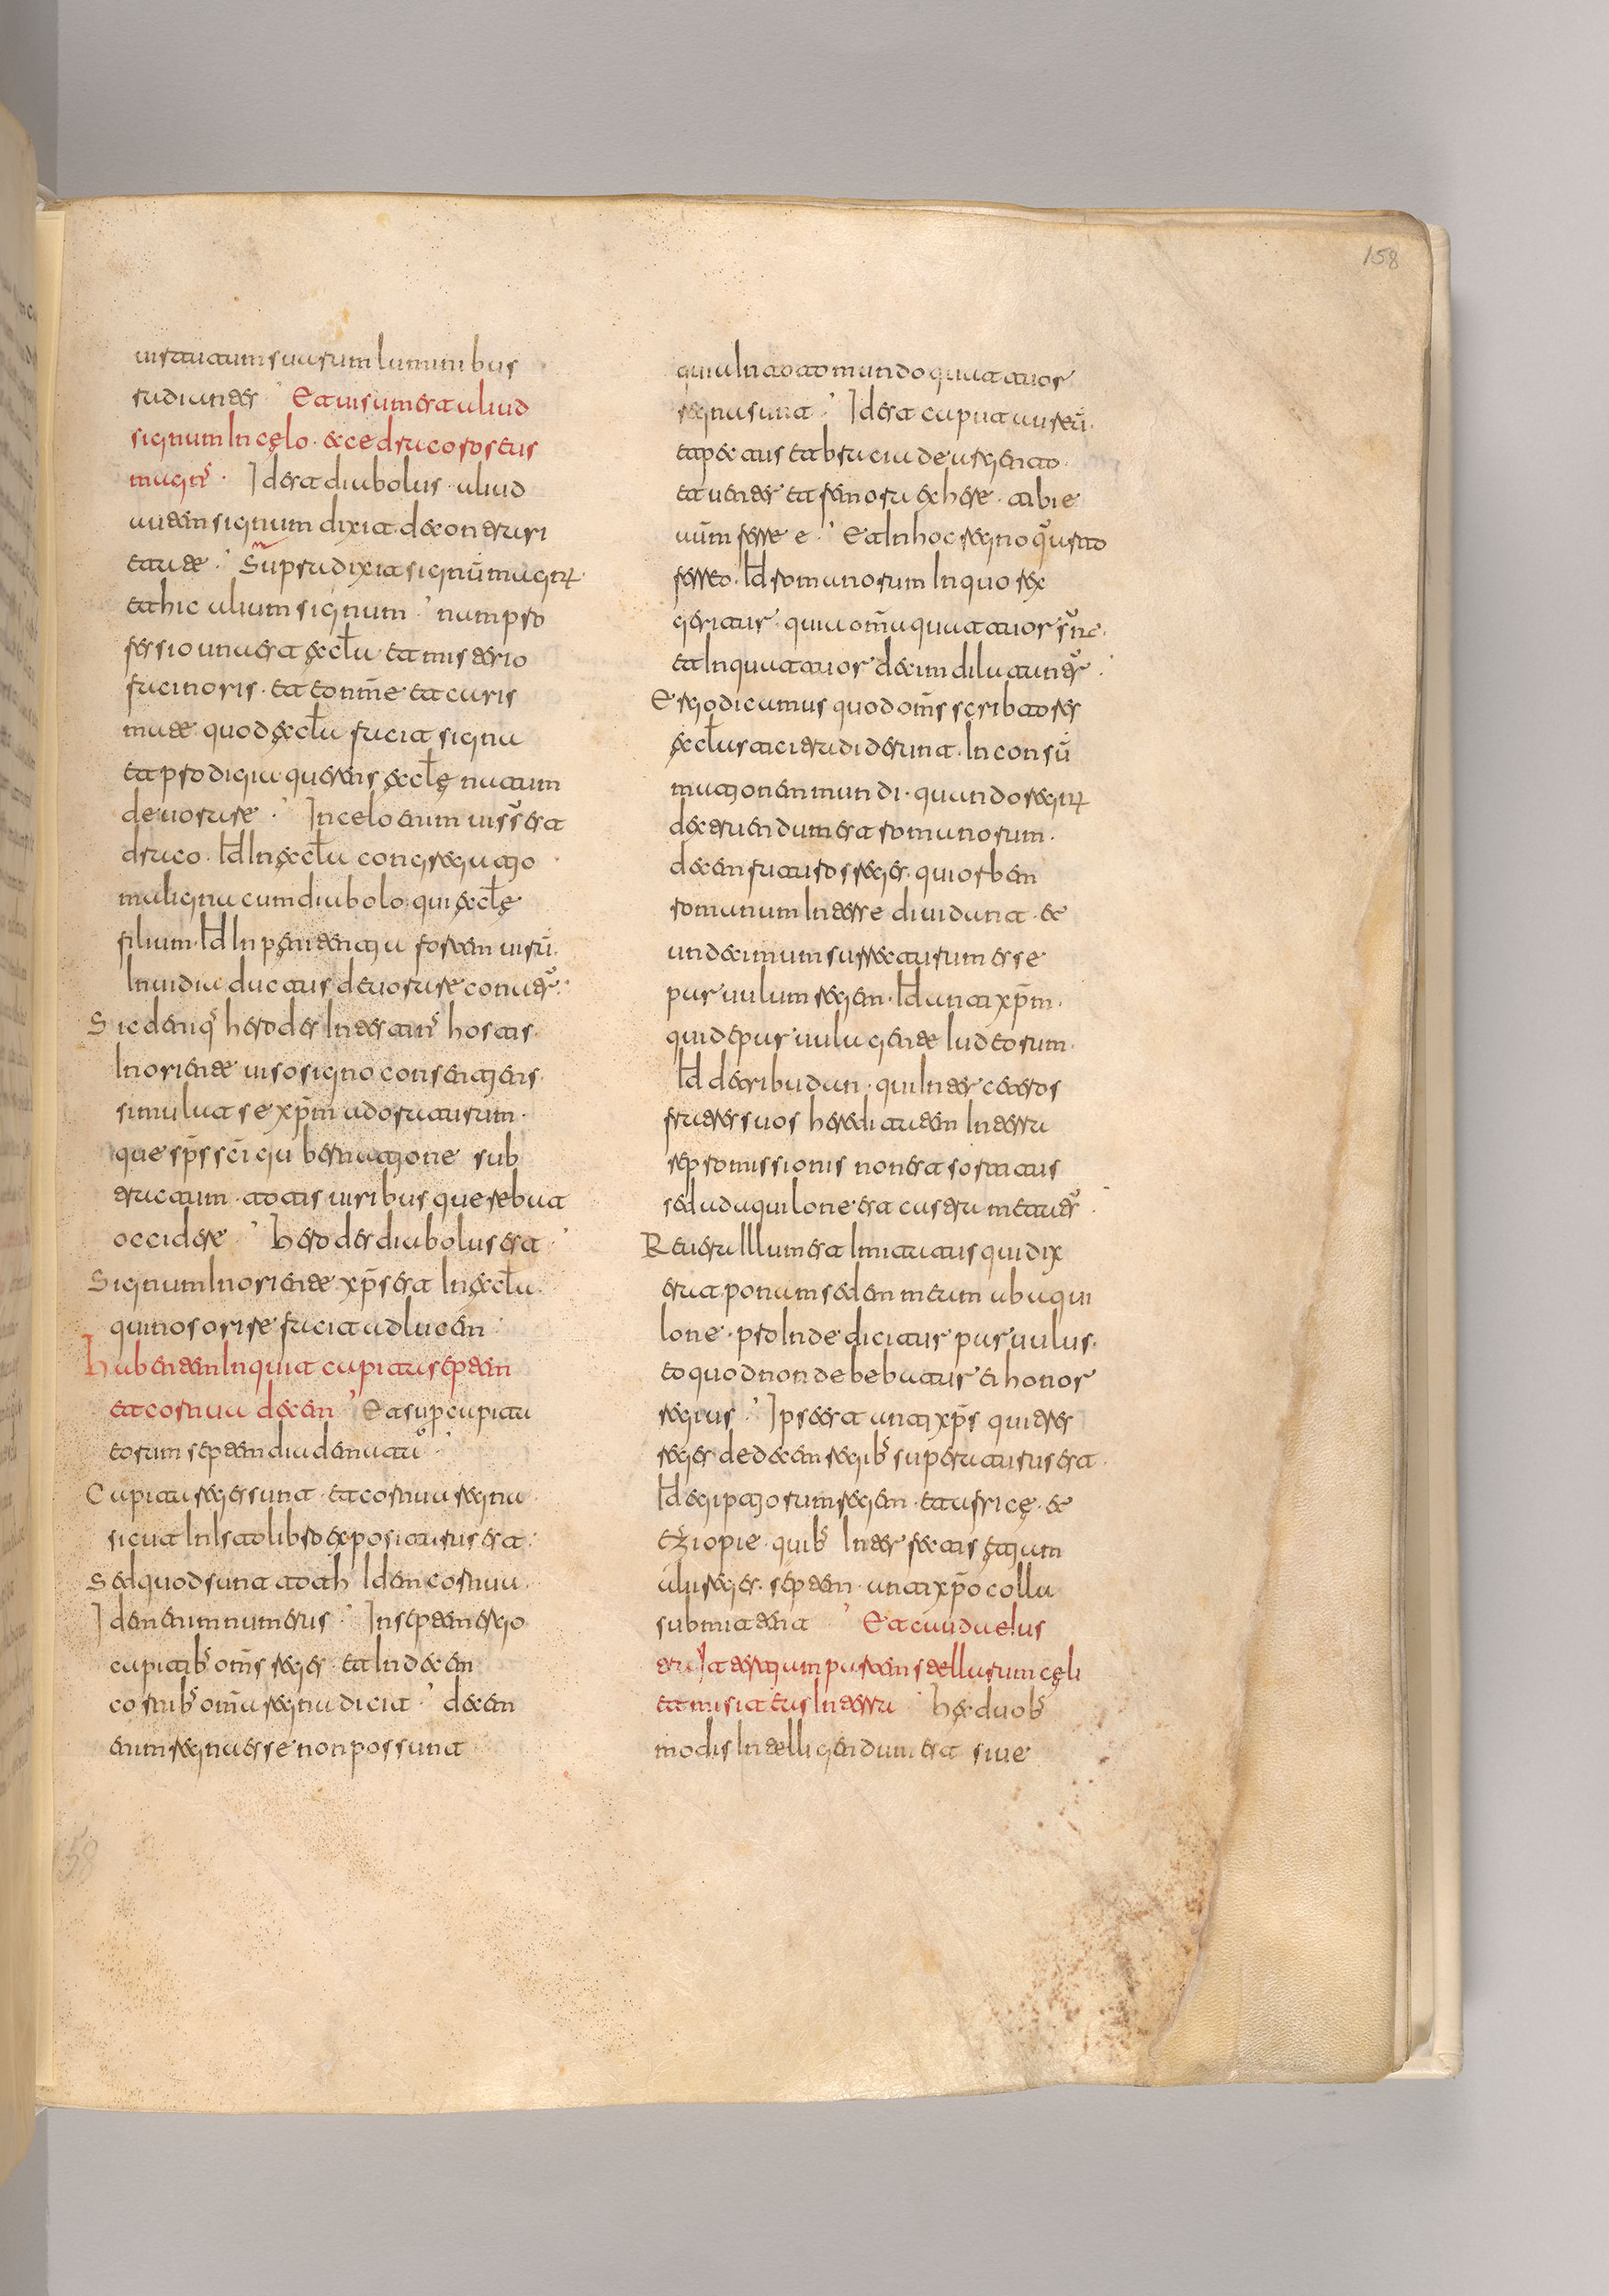 uirtutum suarum luminibus
radiantes Et uisum est aliud
signum In cęlo. ecce draco roseus
magns̄. Id est diabolus. aliud
autem signum dixit. de contrari
etate. Supra dixit signū magnū
et hic alium signum. nam pro
fessio una est ęcl̄a et misterio
facinoris. et conm̄e et caris
mate quod ęcl̄a facit signa
et prodigia querens ęcl̄ę natum
deuorare. In celo enim uiss̄ est
draco. Id In ęcl̄a congregatjo
maligna cum diabolo qui ęcl̄ę
filium. Id In pęnitentja uirū.
Inuidia ductus deuorare conatur̄
Sic deniq̄ herodes hostis.
In oriente uiso signo consentjens.
simulat se xp̄m adoraturum.
que sp̄s sc̄i gubernatjone sub
tractum. totis uiribus querebat
occidere. herodes diabolus est.
Signum In oriente xp̄s est In ęcl̄a.
qui nos orire facit ad lucem
habentem Inquit capita septem
et cornua decem Et sup capita
eorum septem diademata
Capita reges sunt. et cornua regna.
sicut In Isto libro expositurus est.
Sed quod sunt toth Idem cornua.
Idem enim numerus. In septem ergo
capitib̄ om̄s reges. et In decem
cornib̄ om̄a regna dicit. decem
enim regna esse non possunt
quia In toto mundo quattuor
regna sunt. Id est caput aureū.
et pectus et bracia de argento.
et uenter et femora ex here. tibie
uūm ferre e. Et In hoc regno quarto
ferreo. Id romanorum In quo rex
geritur. quia om̄a quattuor sn̄t.
et In quattuor decim dilatantur̄.
Ergo dicamus quod om̄s scribtores
ęcl̄ustici tradiderunt. In consū
matjonem mundi. quando regnū
detruendum est romanorum.
decem futuros reges. qui orbem
romanum Inter se diuidant. et
undecimum surrecturum esse
paruulum regem. Id antixp̄m.
qui de paruula gente Iudeorum.
Id de tribu dan. qui Inter ceteros
fratres suos hereditatem In terra
repromissionis non est sortitus
sed ad aquilone est castra metatur̄.
Reuera Illum est Imitatus qui dix
erat ponam sedem meum ab aqui
lone. pro Inde dicitur paruulus.
eo quod non debebatur ei honor
regius. Ipse est antixp̄s qui tres
reges de decem regib̄ superaturus est.
Id egiptjorum regem. et africę. et
etziopie. quib̄ Inter fectis ętjam
alii reges. septem. antixp̄o colla
submittent Et cauda eius
trait tertjam partem stellarum cęli
et misit eas In terra hęc duob̄
modis Intelligendum est siue
158